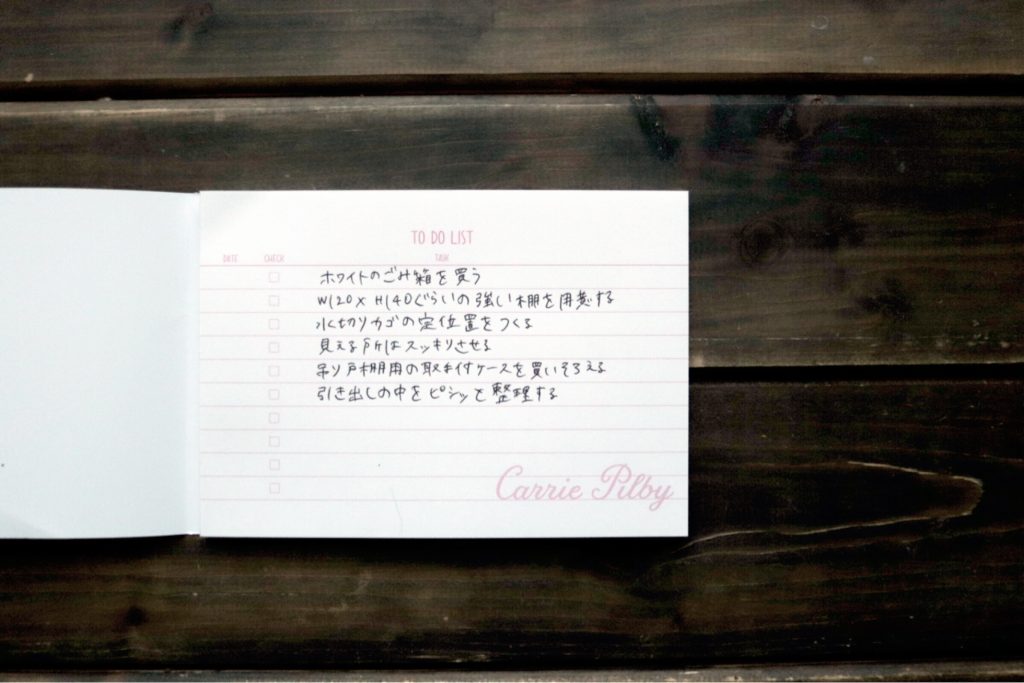 TO DO LIST
DATE CHECK TASK
ホワイトのごみ箱を買う
W120 x H140ぐらいの強い棚を用意する
水切りカゴの定位置をつくる
見える所はスッキリさせる
吊り戸棚用の取手付ケースを買いそろえる
引き出しの中をピシッと整理する
Carrie Pilby